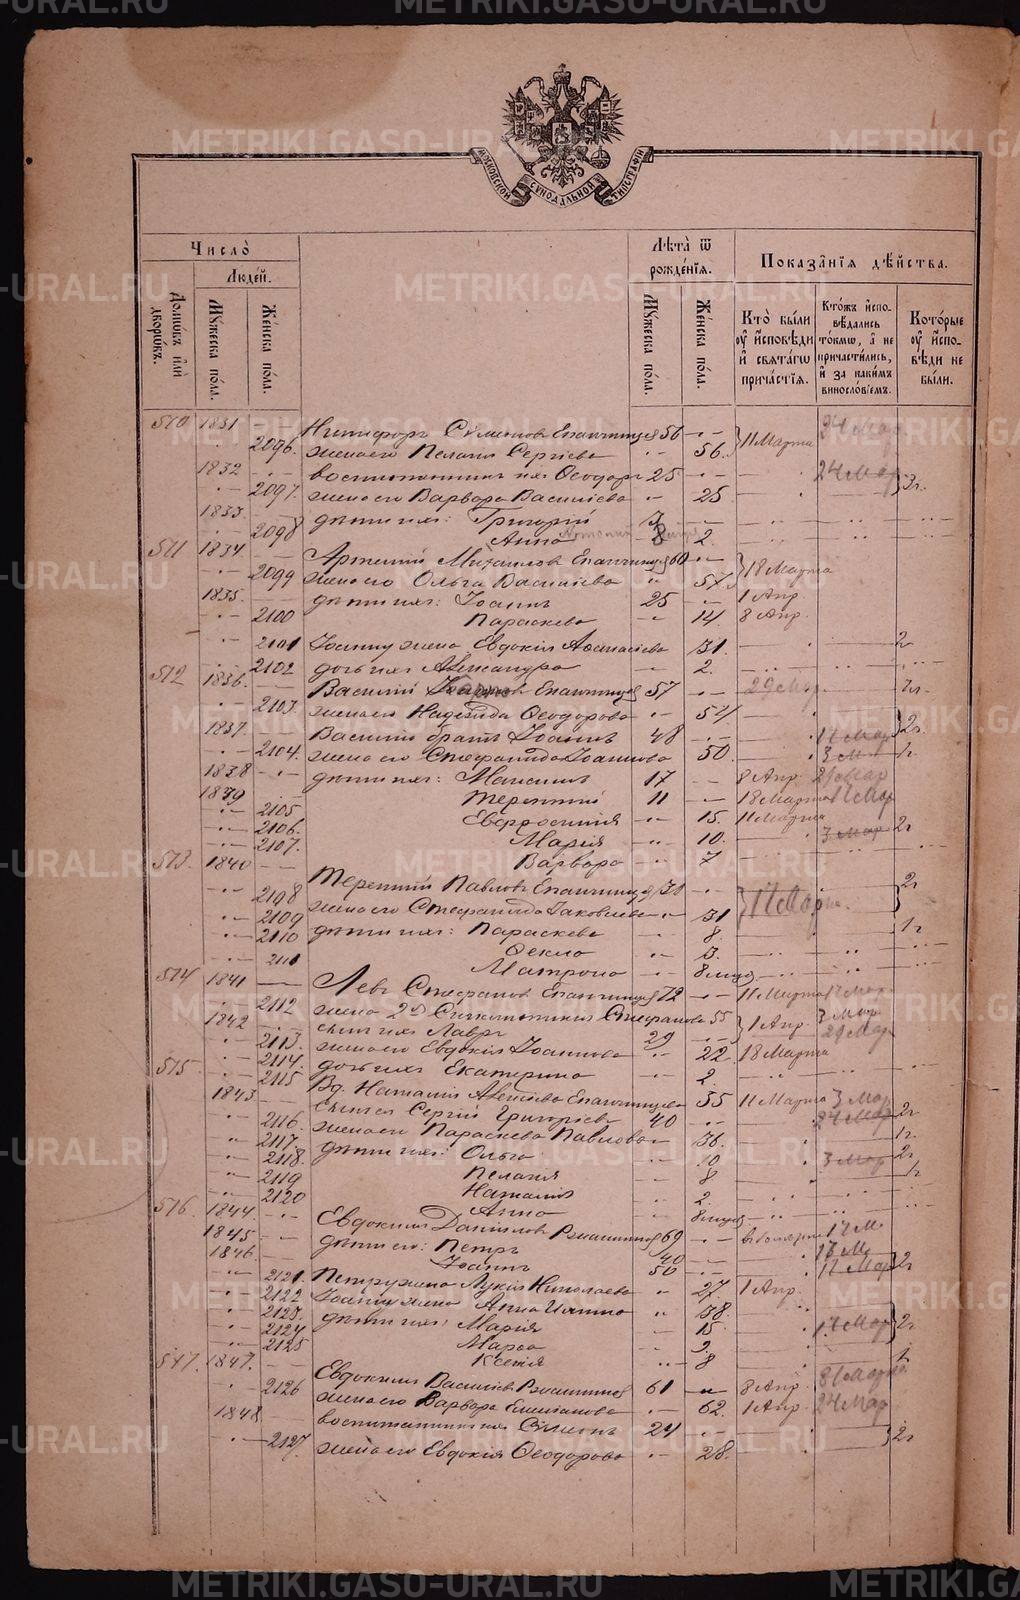 METRIKI.GASO-URAL.RU
МОСКОВСКОЙ СѴНОДАЛЬНОЙ ТИПОГРАФІИ
Число̀
Домѡ́въ и҆лѝ дворѡ́въ.
Люде́й.
Мꙋ́жеска по́ла.
Же́нска по́ла.
Лѣ́та ѿ рожде́нїѧ.
Мꙋ́жеска по́ла.
Же́нска по́ла.
Показа̑нїѧ дѣ́йства.
Кто̀ бы́ли ᲂу҆ и҆сповѣ́ди и҆ свѧта́гѡ прича́стїѧ.
Кто́жъ и҆сповѣ́дались то́кмѡ, а҆ не причасти́лись, и҆ за каки́мъ виносло́вїемъ.
Кото́рые ᲂу҆ и҆сповѣ́ди не бы́ли.
510 1831 Никифоръ Сѵмеоновъ Епанчинцевъ 56 11 Марта
2096 жена его Пелагія Сергіева 56
1832 воспитанникъ ихъ Ѳеодоръ 25 24 Мар
2097 жена его Варвара Василіева 25
1833 дѣти ихъ: Григорій 3
2098 Анна 2
511 1834 Артемій Михаиловъ Епанчинцевъ 60 18 Марта
2099 жена его Ольга Василіева 57
1835 дѣти ихъ: Іоаннъ 25 1 Апр.
2100 Параскева 14 8 Апр.
2101 Іоанну жена Евдокія Аѳанасіева 31 2
2102 дочь ихъ Александра 2.
512 1836 Василій Епанчинцевъ 57 29 Мар.
2103 жена его Надежда Ѳеодорова 54
1837 Василія братъ Іоаннъ 48 17 Мар 2г.
2104 жена его Стефанида Іоаннова 50 3 М
1838 дѣти ихъ: Максимъ 17 8 Апр.
1839 Терентій 11 18 Марта 17 Мар
2105 Евфросинія 15. 11 Марта
2106 Марія 10. 3 Мар 2г
2107 Варвара 7
513 1840 Терентій Павловъ Епанчинцевъ 31 2г
2108 жена его Стефанида Іаковлева 31 17 Мар
2109 дѣти ихъ: Параскева 8
2110 Ѳекла 3
2111 Матрона 8 мѣсяц
514 1841 Левъ Стефановъ Епанчинцевъ 72 11 Марта 17 Мар
2112 жена 2я Стефанова 55 1 Апр. 3 Мар
1842 сынъ ихъ Лавръ 29
2113 жена его Евдокія Іоаннова 22 18 Марта
2114 дочь ихъ Екатерина 2.
515 2115 Вд. Наталія Алексіева Епанчинцева 55 11 Марта 3 Мар
1843 сынъ ея Сергій Григоріевъ 40 24 Мар 2г
2116 жена его Параскева Павлова 36
2117 дѣти ихъ: Ольга 10 3 Мар 2г
2118 Пелагія 8
2119 Наталія 2
2120 Анна 8 мѣсяц
516 1844 Евдокимъ Даніиловъ 69 17 М
1845 дѣти его: Петръ 40 17 М.
1846 Іоаннъ 30 17 Мар 2г
2121 Петру жена Лукія Николаева 27 1 Апр.
2122 Іоанну жена Анна 38
2123 дѣти ихъ: Марія 15 17 Мар 2г
2124 Марѳа 9
2125 Ксенія 8
517 1847 Евдокимъ Василіевъ 61 8 Апр.
2126 жена его Варвара Емиліанова 62. 1 Апр. 24 Мар
1848 воспитанникъ ихъ Сѵмеонъ 24 2г
2127 жена его Евдокія Ѳеодорова 28.